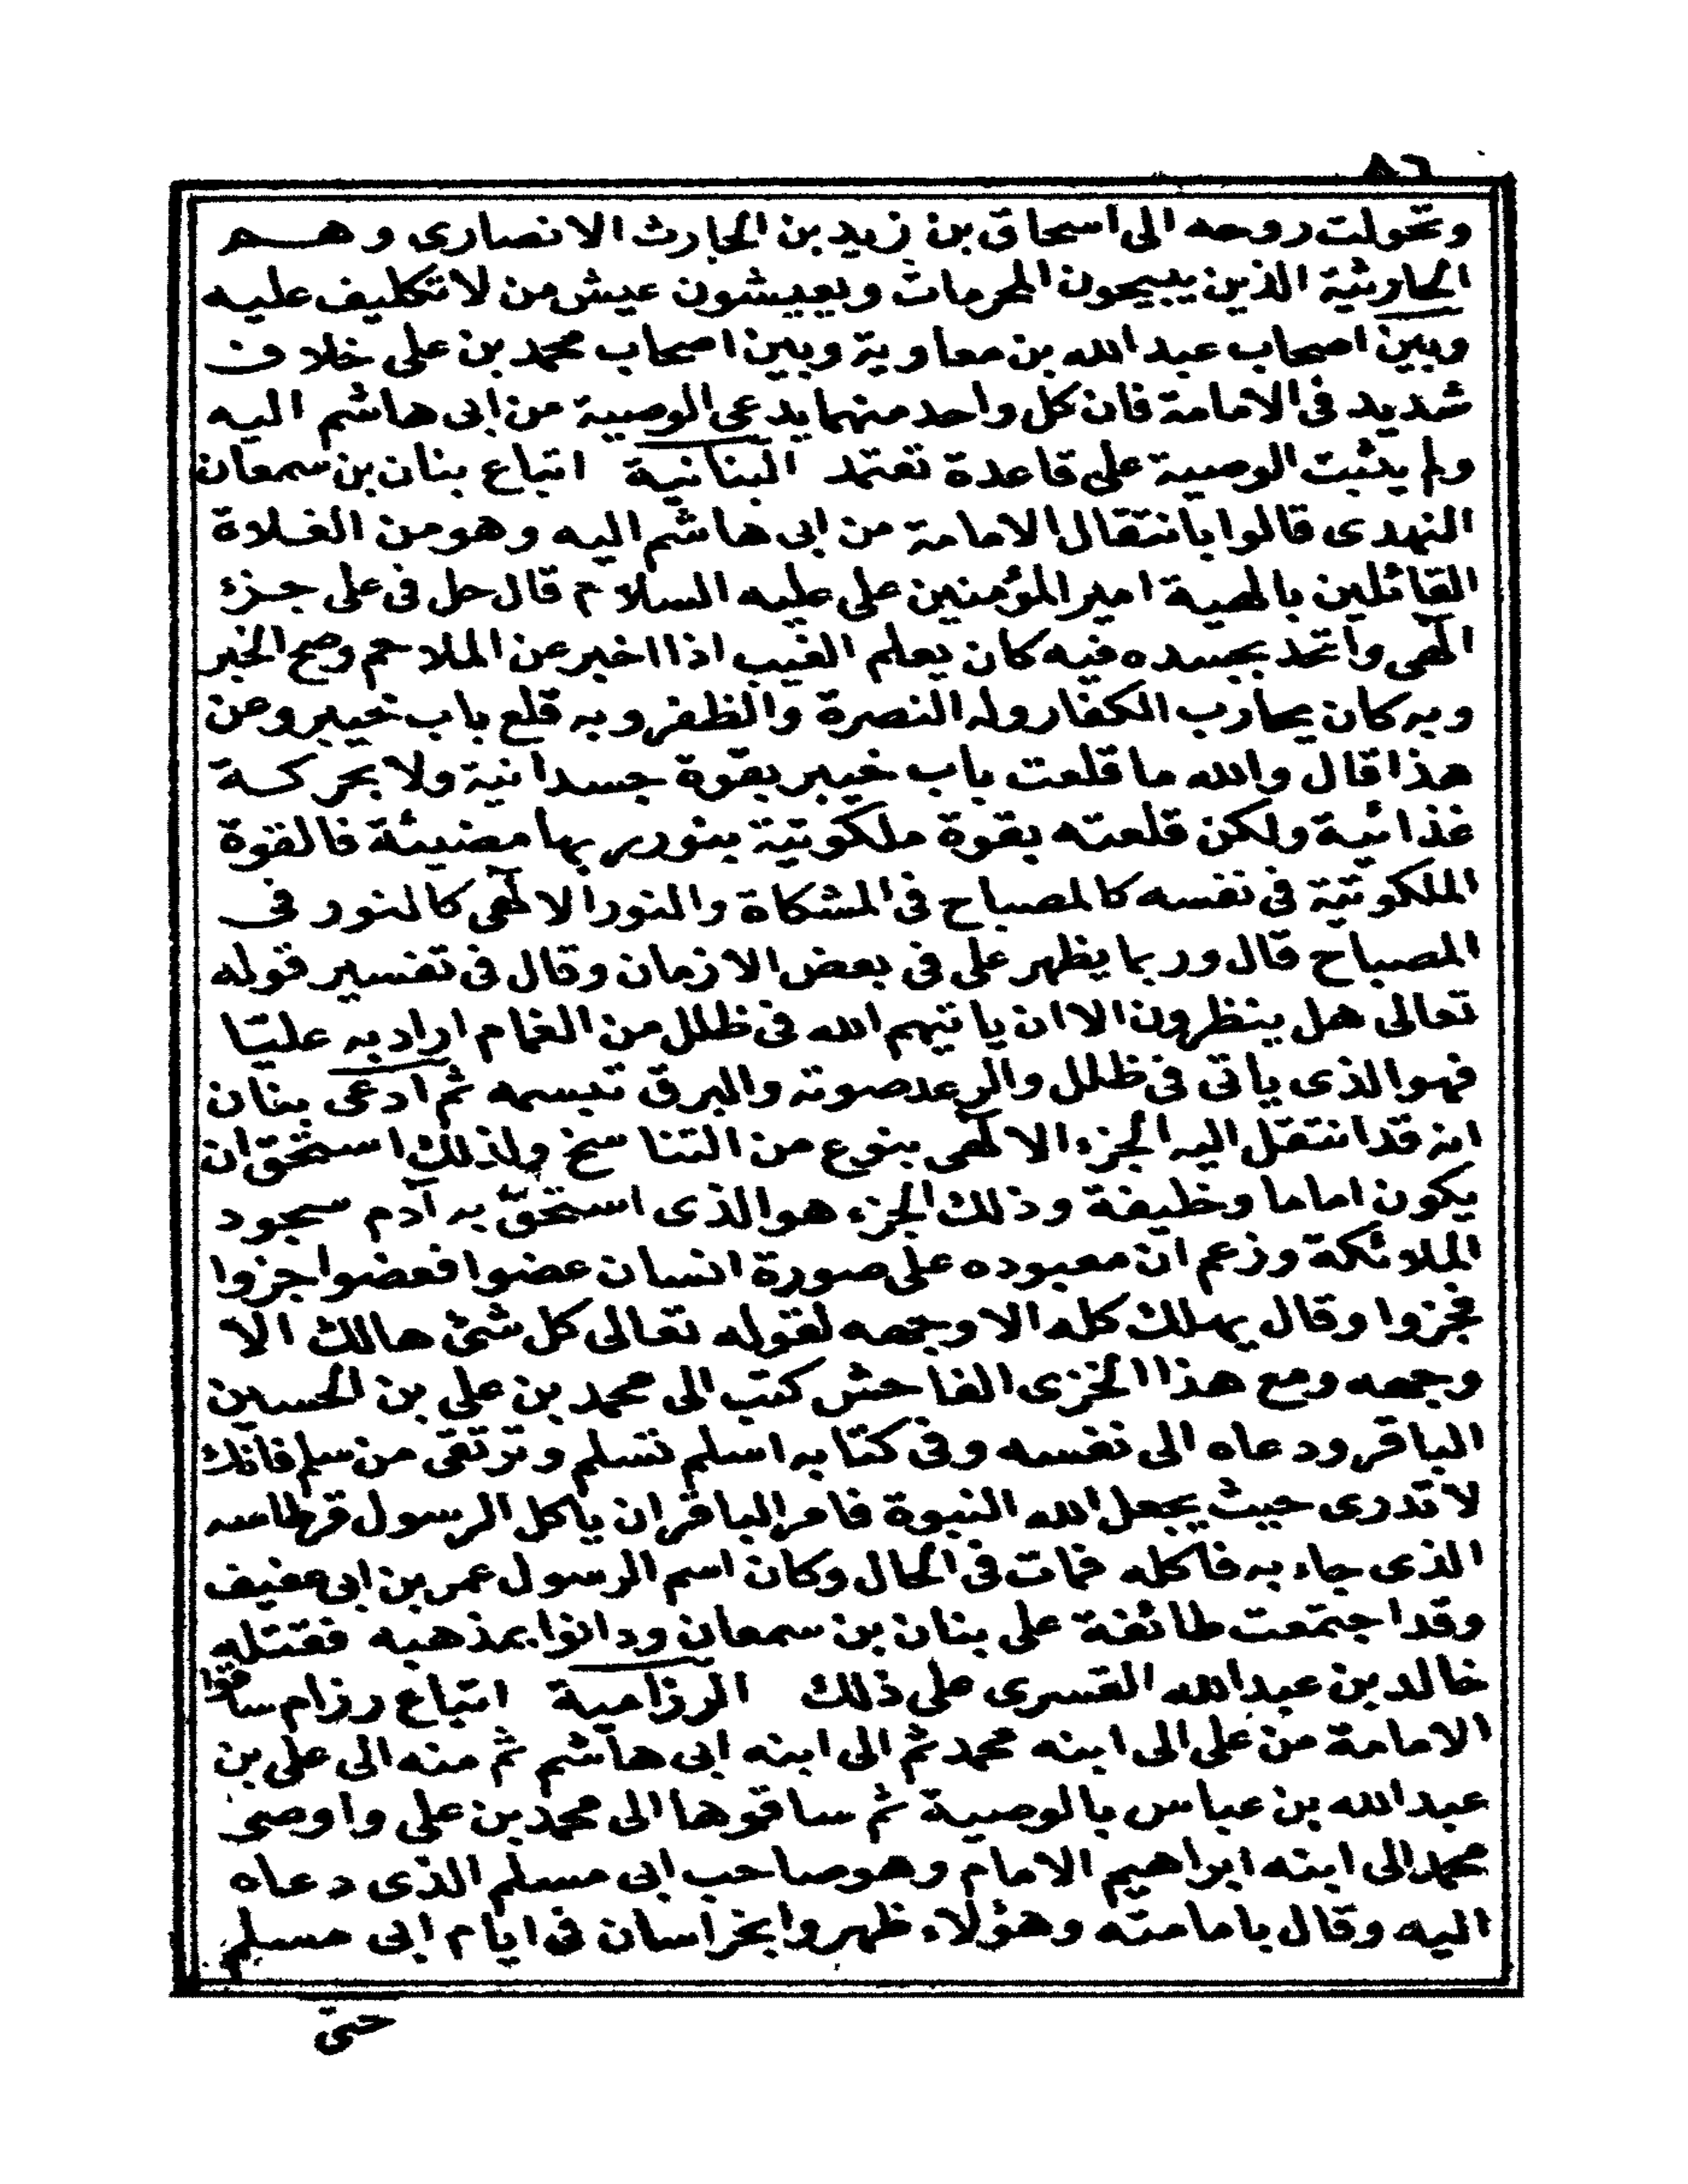 ٨٦
وتحولت روحه الى اسحاق بن زيد بن الحارث الانصارى وهم
الحارثية الذين يبيحون المحرمات ويعيشون عيش من لا تكليف عليه
وبين اصحاب عبد الله بن معاوية وبين اصحاب محمد بن على خلاف
شديد فى الامامة فان كل واحد منهما يدعى الوصية من ابى هاشم اليه
ولم يثبت الوصية على قاعدة تعتمد البنانية اتباع بنان بن سمعان
النهدى قالوا بانتقال الامامة من ابى هاشم اليه وهو من الغلاة
القائلين بالهية امير المؤمنين على عليه السلام قال حل فى على جزء
الٓهى واتحد بجسده فيه كان يعلم الغيب اذا اخبر عن الملاحم وصح الخبر
وبه كان يحارب الكفار وله النصرة والظفر وبه قلع باب خيبر وعن
هذا قال والله ما قلعت باب خيبر بقوة جسدانية ولا بحركة
غذائية ولكن قلعته بقوة ملكوتية بنور ربها مضيئة فالقوة
الملكوتية فى نفسه كالمصباح فى المشكاة والنور الالٓهى كالنور فى
المصباح قال وربما يظهر على فى بعض الازمان وقال فى تفسير قوله
تعالى هل ينظرون الا ان ياتيهم الله فى ظلل من الغمام اراد به عليّا
فهو الذى ياتى فى ظلل والرعد صوته والبرق تبسمه ثم ادعى بنان
انه قد انتقل اليه الجزء الالٓهى بنوع من التناسخ ولذلك استحق ان
يكون اماما وخليفة وذلك الجزء هو الذى استحقّ به آدم سجود
الملائكة وزعم ان معبوده على صورة انسان عضوا فعضوا جزوا
فجزوا وقال يهلك كله الا وجهه لقوله تعالى كل شئ هالك الا
وجهه ومع هذا الخزى الفاحش كتب الى محمد بن على بن الحسين
الباقر ودعاه الى نفسه وفى كتابه اسلم تسلم وترتقى من سلم فانك
لا تدرى حيث يجعل الله النبوة فامر الباقر ان ياكل الرسول قرطاسه
الذى جاء به فاكله فمات فى الحال وكان اسم الرسول عمر بن ابى عفيف
وقد اجتمعت طائفة على بنان بن سمعان ودانوا بمذهبه فقتله
خالد بن عبد الله القسرى على ذلك الرزامية اتباع رزام ساقوا
الامامة من على الى ابنه محمد ثم الى ابنه ابى هاشم ثم منه الى على بن
عبد الله بن عباس بالوصية ثم ساقوها الى محمد بن على واوصى
محمد الى ابنه ابراهيم الامام وهو صاحب ابى مسلم الذى دعاه
اليه وقال بامامته وهؤلاء ظهروا بخراسان فى ايام ابى مسلم
حتى